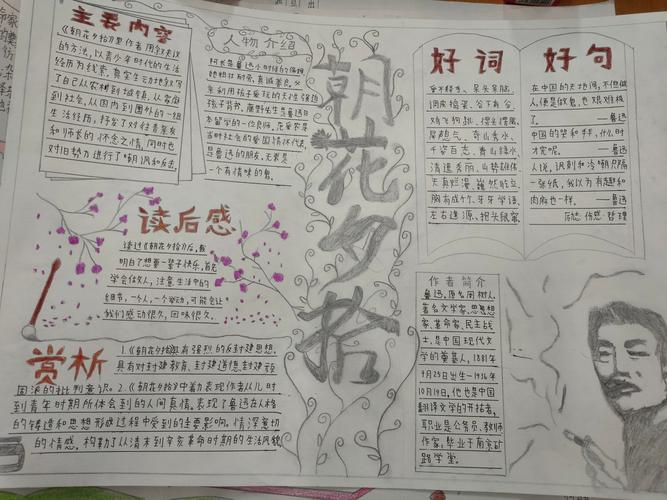 主要内容
《朝花夕拾》里作者用叙夹议
的方法,以青少年时代的生活
经历为线索,真实生动地叙写
了自己从农村到城镇,从家庭
到社会,从国内到国外的一组
生活经历,抒发了对往昔亲友
和师长的怀念之情,同时也
对旧势力进行了嘲讽和反击。
人物介绍
阿长是鲁迅小时候的保姆,
她粗壮耐劳,真诚善良。父
亲利用孩子爱玩的天性强迫
孩子背书。藤野先生是鲁迅日
本留学的一位良师。范爱农是
当时社会的爱国情怀代表,
是鲁迅的朋友。无常是
一个有情味的鬼。
朝花夕拾
好词
好句
呆头呆脑、
调皮捣蛋、谷下有谷、
鸡飞狗跳、摆尖摆展、
忍气、奇山秀水、
千姿百态、青山绿水、
清速秀丽、山势雄伟、
天真烂漫、巍然屹立、
胸有成竹、牙牙学语、
左右逢源、抱头鼠窜
在中国的天地间,不但做
人,便是做鬼,也艰难极
了。 ——鲁迅
中国的哭和拜,什么时
才完呢。 ——鲁迅
人说,讽刺和冷嘲只隔
一张纸,我以为有趣和
肉麻也一样。 ——鲁迅
伤感·哲理
读后感
读过《朝花夕拾》后,我
明白了想要一辈子快乐,首先
学会做好人,注意生活中的
细节,一个人,一个举动,可能会让
我们感动很久,回味很久。
赏析
1.《朝花夕拾》拥有强烈的反封建思想,
具有对封建教育,封建道德,封建顽
固派的批判意识。2.《朝花夕拾》中着力表现作者从儿时
到青年时期所体会到的人间真情。表现了鲁迅在人格
的铸造和思想形成过程中受到的主要影响。情深意切
的情感,构勒了从清末到辛亥革命时期的生活风貌
作者简介
鲁迅,原名周树人,
著名文学家、思想
家、革命家、民主战
士,是中国现代文
学的奠基人,1881年
9月25日出生—1936年
10月19日,他也是中国
翻译文学的开拓者,
职业是公务员、教师
作家,毕业于南京矿
路学堂。